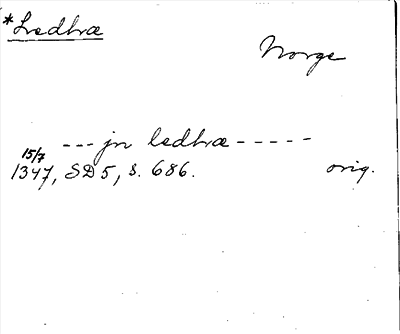 *Ledhræ
Norge
--- jn ledhræ -----
15/7
1347, SD 5, s. 686. orig.